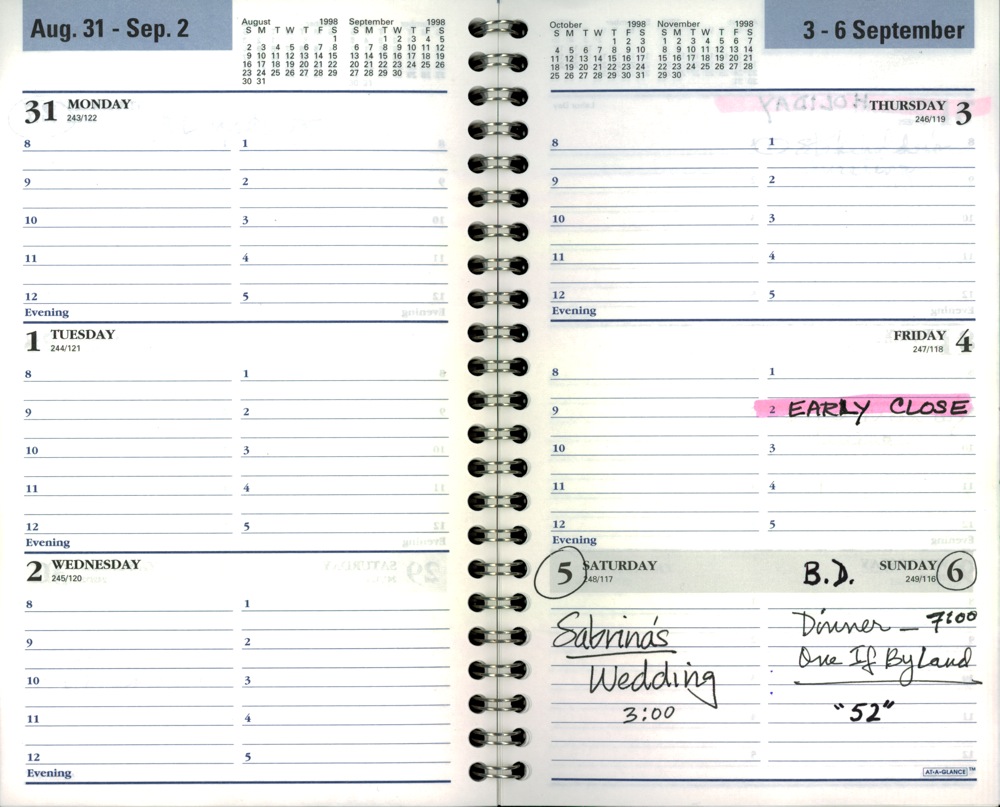 Aug. 31 - Sep. 2
August 1998
S M T W T F S
1
2 3 4 5 6 7 8
9 10 11 12 13 14 15
16 17 18 19 20 21 22
23 24 25 26 27 28 29
30 31
September 1998
S M T W T F S
1 2 3 4 5
6 7 8 9 10 11 12
13 14 15 16 17 18 19
20 21 22 23 24 25 26
27 28 29 30
31 MONDAY
243/122
8 1
9 2
10 3
11 4
12 5
Evening
1 TUESDAY
244/121
8 1
9 2
10 3
11 4
12 5
Evening
2 WEDNESDAY
245/120
8 1
9 2
10 3
11 4
12 5
Evening
October 1998
S M T W T F S
1 2 3
4 5 6 7 8 9 10
11 12 13 14 15 16 17
18 19 20 21 22 23 24
25 26 27 28 29 30 31
November 1998
S M T W T F S
1 2 3 4 5 6 7
8 9 10 11 12 13 14
15 16 17 18 19 20 21
22 23 24 25 26 27 28
29 30
3 - 6 September
THURSDAY 3
246/119
8 1
9 2
10 3
11 4
12 5
Evening
FRIDAY 4
247/118
8 1
9 2 EARLY CLOSE
10 3
11 4
12 5
Evening
5 SATURDAY
248/117
Sabrina's
Wedding
3:00
B.D. SUNDAY 6
249/116
Dinner — 7:00
One If By Land
"52"
AT-A-GLANCE™